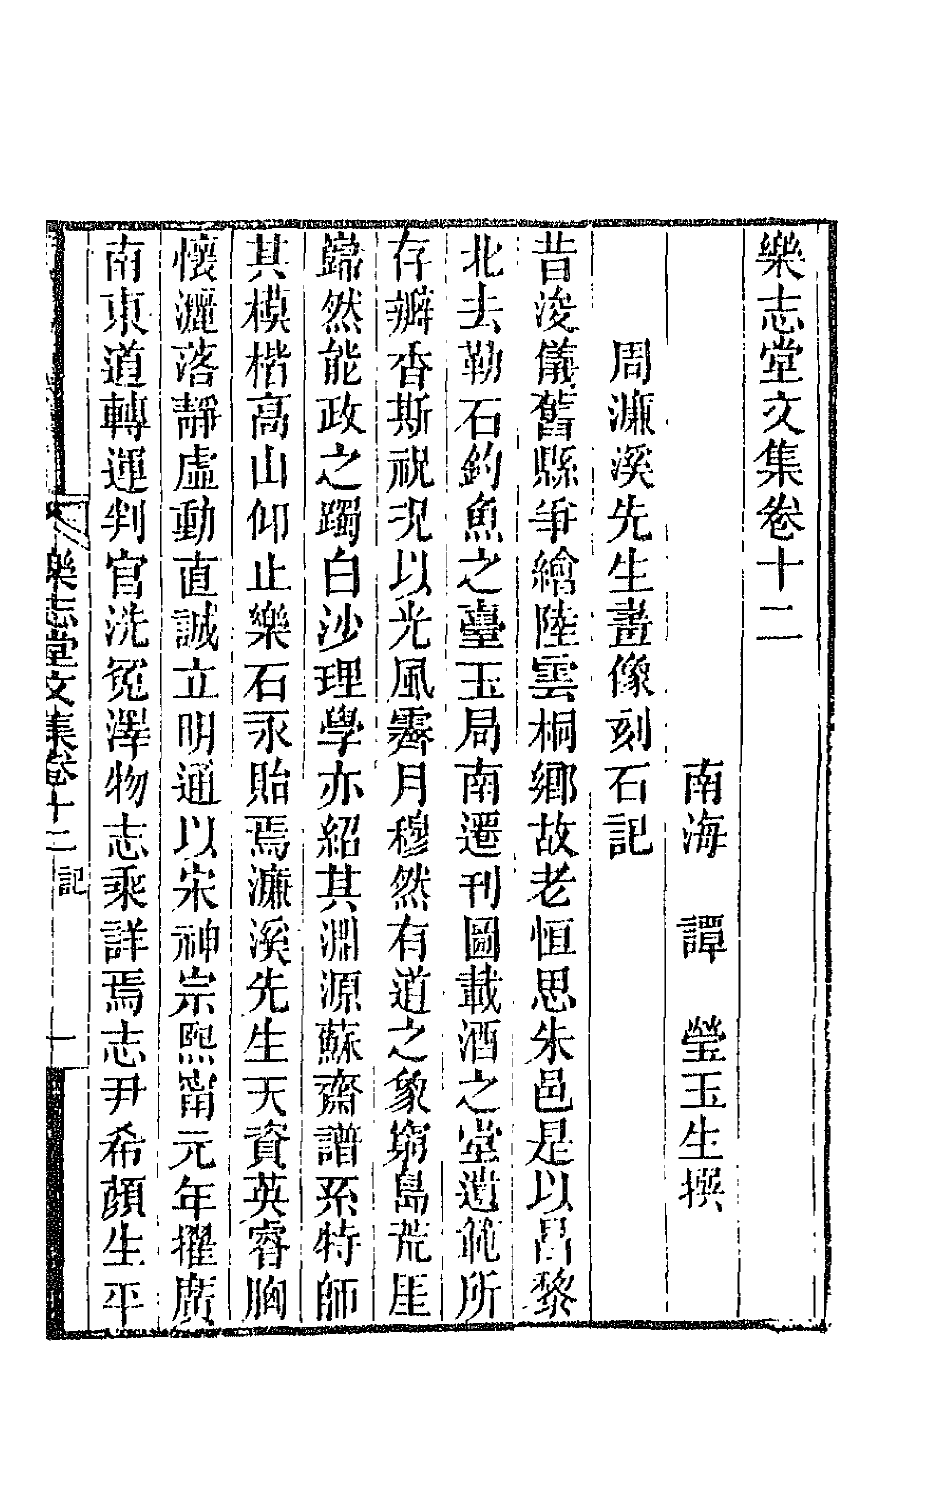 樂志堂文集卷十二
南海 譚 瑩玉生撰
周濂溪先生畫像刻石記
昔浚儀舊縣爭繪陸雲桐鄉故老恒思朱邑是以昌黎
北去勒石釣魚之臺玉局南遷刊圖載酒之堂遺範所
存瓣香斯祝况以光風霽月穆然有道之象窮島荒厓
巋然能政之躅白沙理學亦紹其淵源蘇齋譜系特師
其模楷高山仰止樂石永貽焉濂溪先生天資英睿胸
懷灑落靜虛動直誠立明通以宋神宗熙甯元年擢廣
南東道轉運判官洗冤澤物志乘詳焉志尹希顏生平
樂志堂文集卷十二 記 一